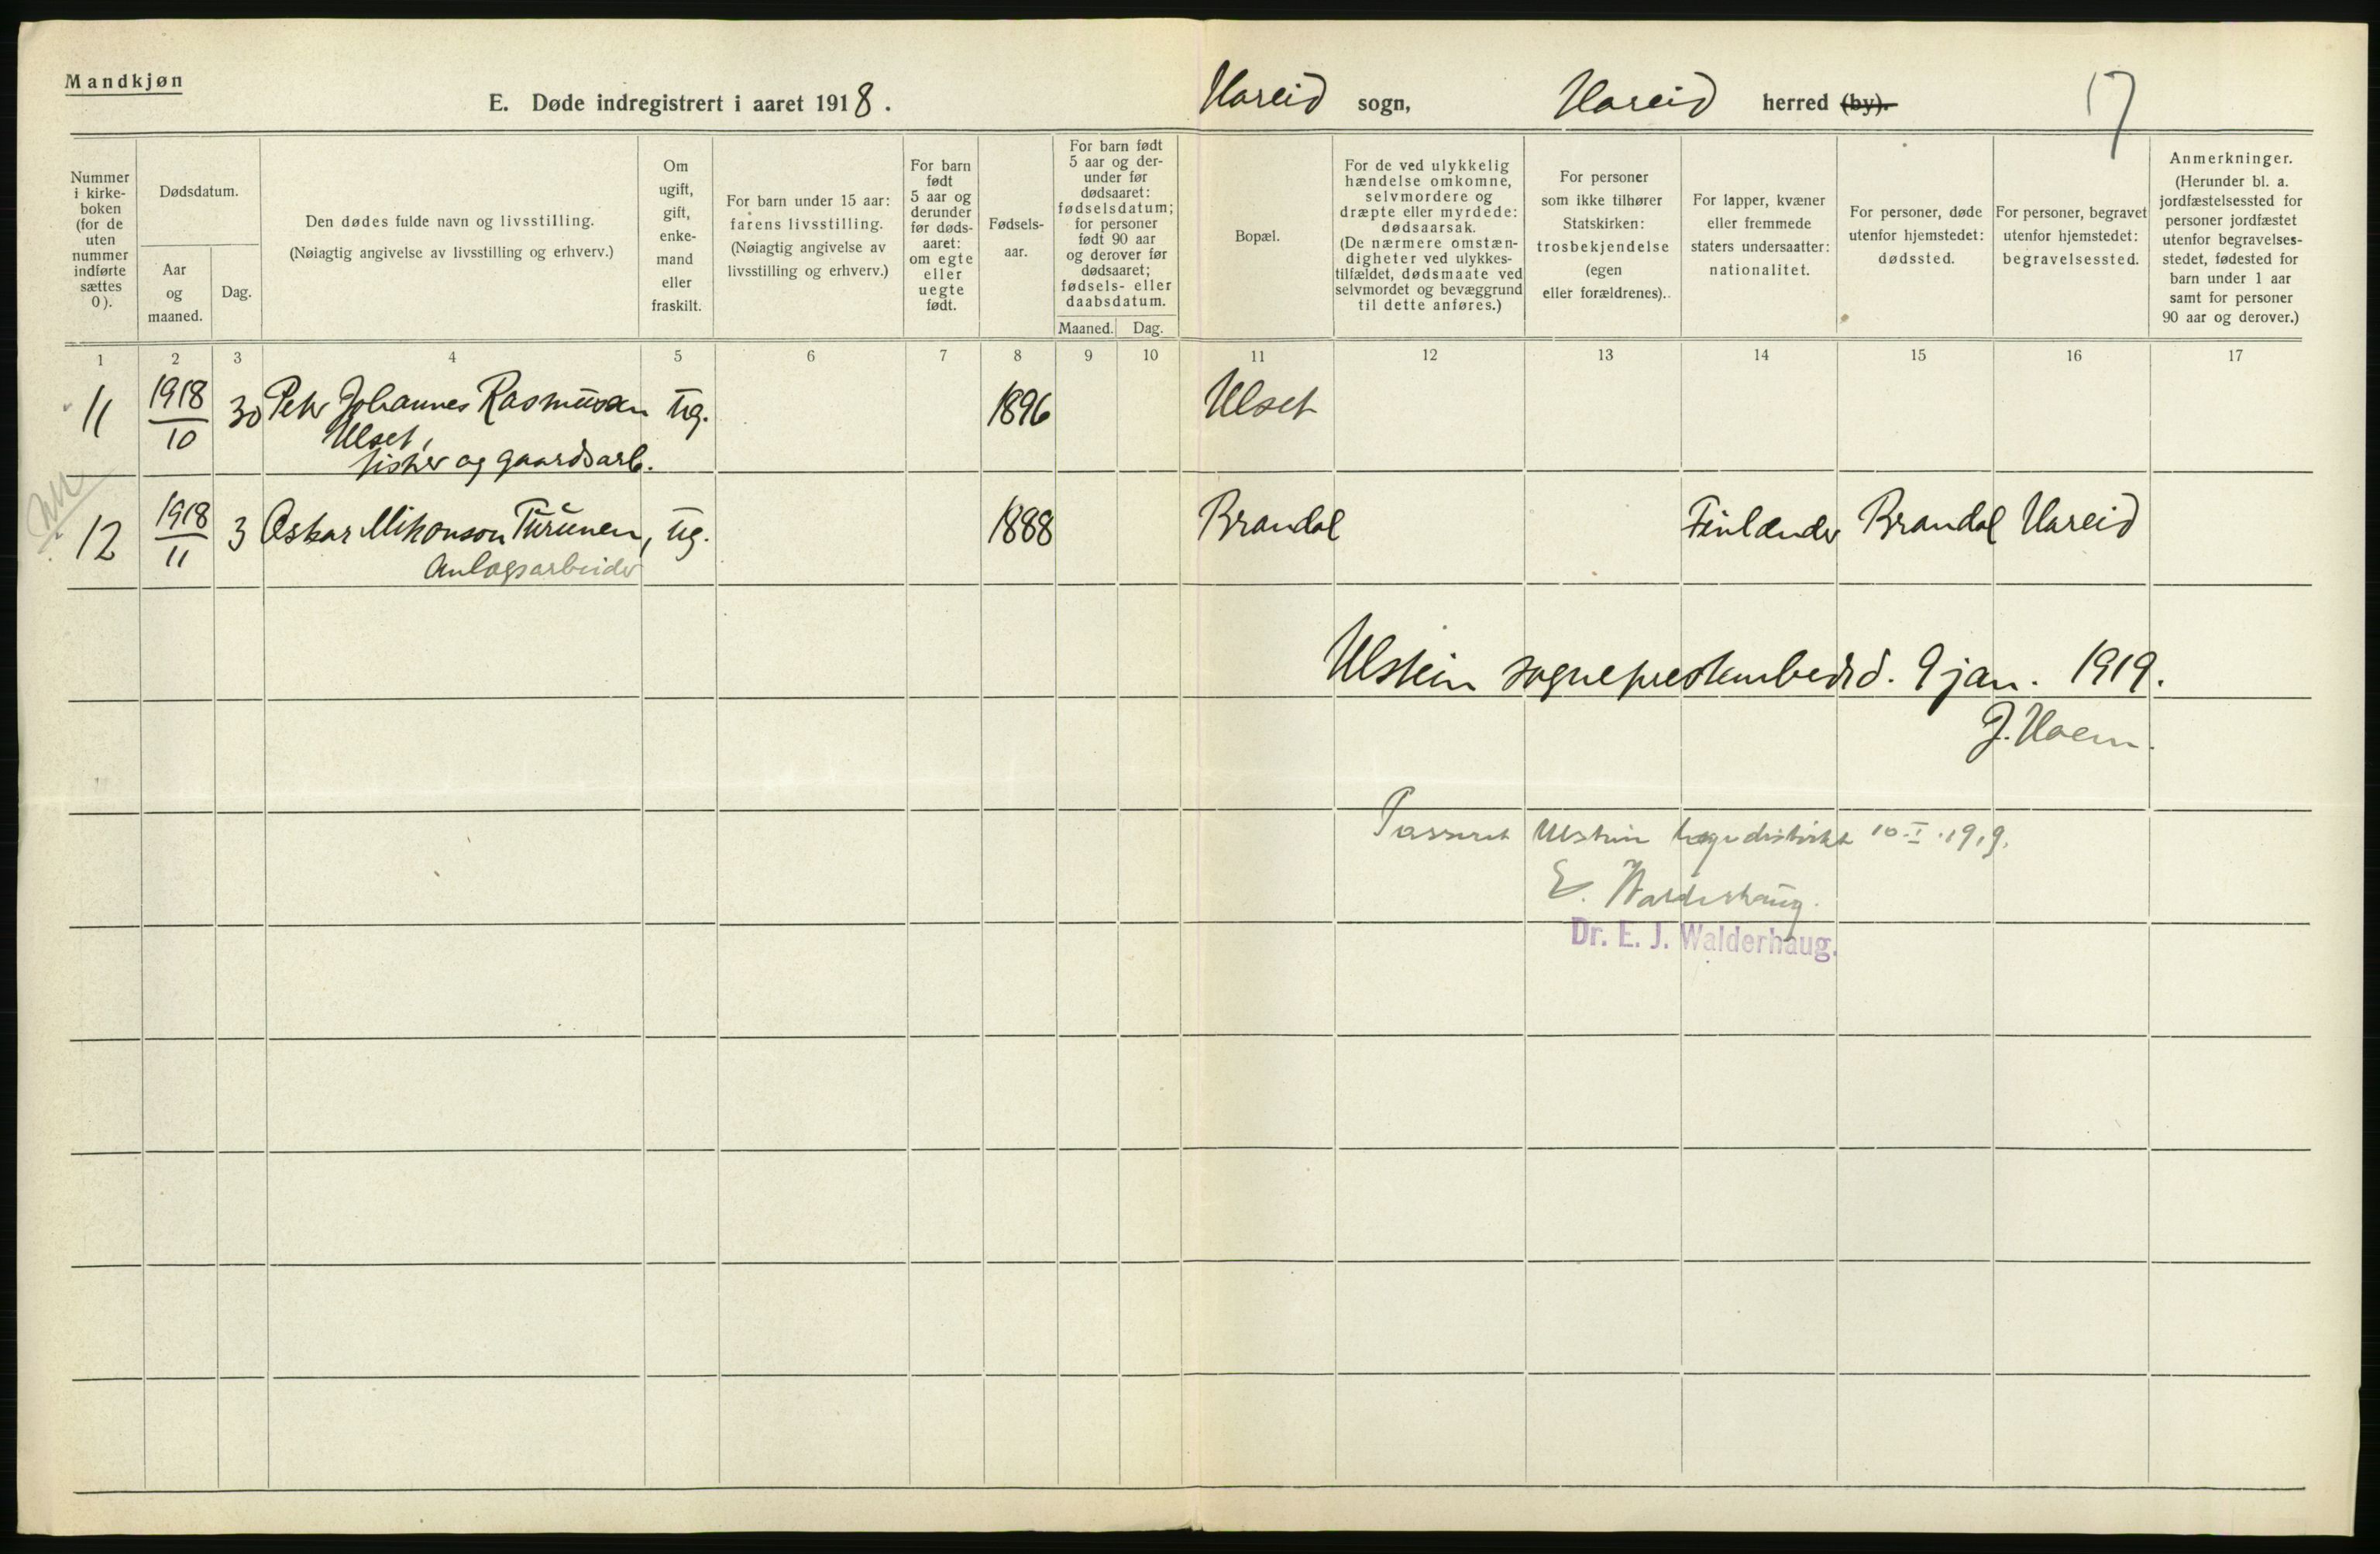 Mandkjøn
E. Døde indregistrert i aaret 1918. Hareid sogn, Hareid herred (by). 17
Nummer i kirke- boken (for de uten nummer indførte sættes 0).
Dødsdatum.
Aar og maaned.
Dag.
Den dødes fulde navn og livsstilling.
(Nøiagtig angivelse av livsstilling og erhverv.)
Om ugift, gift, enke- mand eller fraskilt.
For barn under 15 aar: farens livsstilling. (Nøiagtig angivelse av livsstilling og erhverv.)
For barn født 5 aar og derunder før døds- aaret: om egte eller uegte født.
Fødsels- aar.
For barn født 5 aar og der- under før dødsaaret: fødselsdatum; for personer født 90 aar og derover før dødsaaret; fødsels- eller daabsdatum.
Maaned. Dag.
Bopæl.
For de ved ulykkelig hændelse omkomne, selvmordere og dræpte eller myrdede: dødsaarsak. (De nærmere omstæn- digheter ved ulykkes- tilfældet, dødsmaate ved selvmordet og bevæggrund til dette anføres.)
For personer som ikke tilhører Statskirken: trosbekjendelse (egen eller forældrenes).
For lapper, kvæner eller fremmede staters undersaatter: nationalitet.
For personer, døde utenfor hjemstedet: dødssted.
For personer, begravet utenfor hjemstedet: begravelsessted.
Anmerkninger. (Herunder bl. a. jordfæstelsessted for personer jordfæstet utenfor begravelses- stedet, fødested for barn under 1 aar samt for personer 90 aar og derover.)
1 2 3 4 5 6 7 8 9 10 11 12 13 14 15 16 17
11 1918/10 30 Peter Johannes Rasmussen ug. 1896 Ulset
Ulset,
fisker og gaardsarb.
12 1918/11 3 Oskar Mikonson Turunen, ug. 1888 Brandal Finlænder Brandal Hareid
Anlægsarbeider
Ulstein sogneprestembede d. 9 jan. 1919.
J. Hoem.
Passeret Ulstein lægedistrikt 10.I.1919.
E. Walderhaug.
Dr. E. J. Walderhaug.